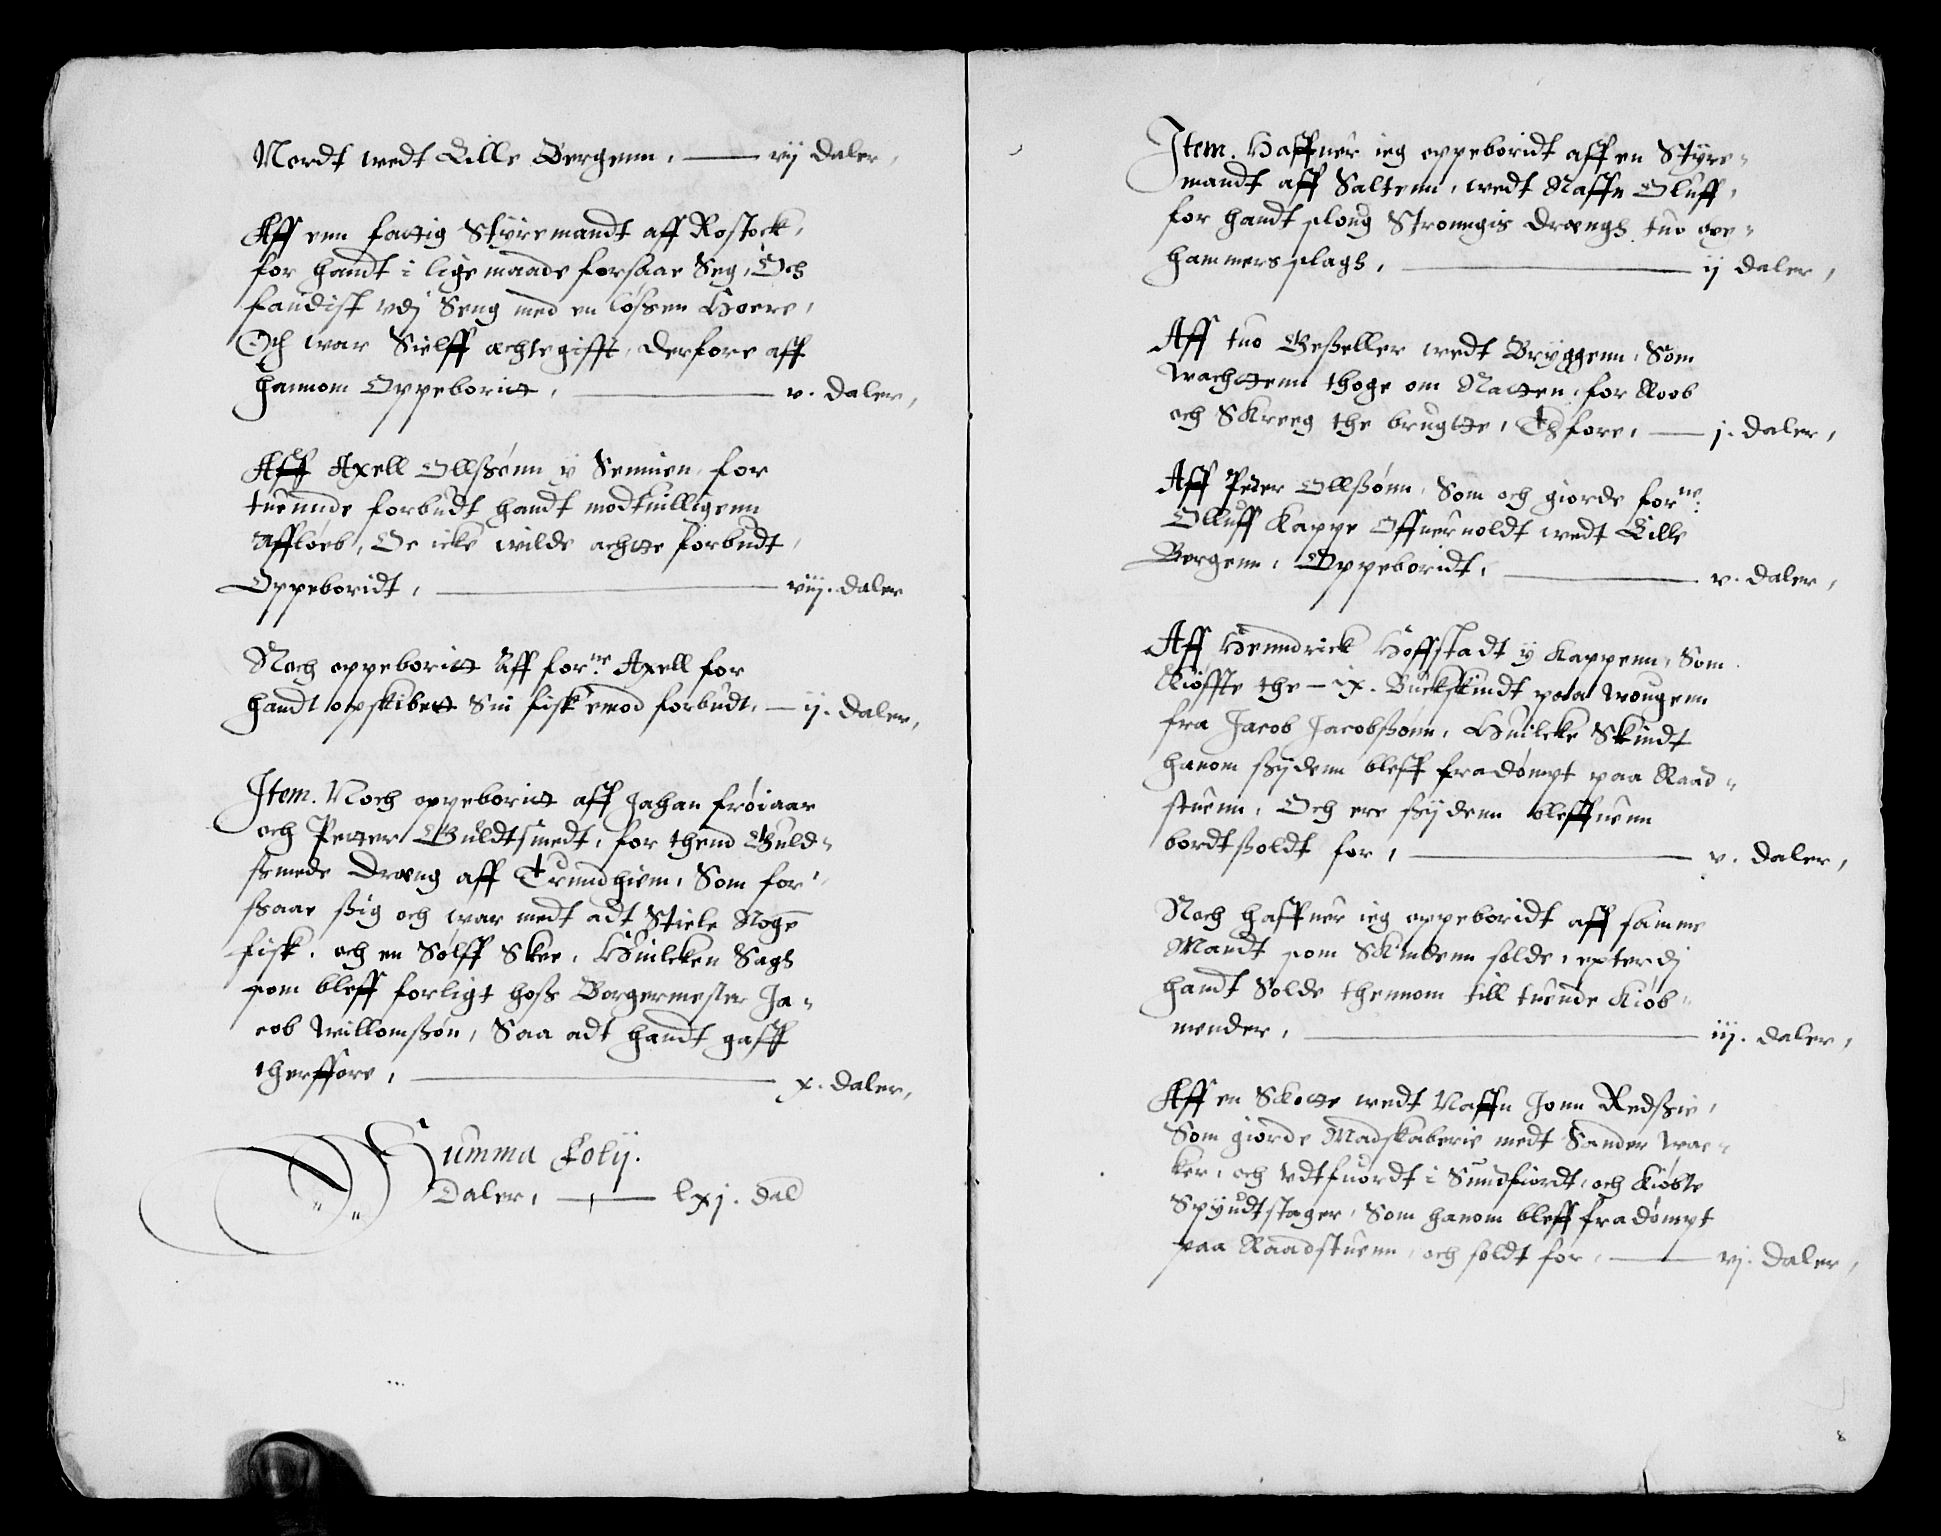 Nordt wedt Lille Bergenn, —— vij daler,
Aff enn fattig Styremandt aff Rostock,
for handt i lige maade forsaae Seg, Och
fandist vdj Seng med en løssen Hoere,
Och war Sielff æchtegifft, derfore aff
hannom Oppeboritt, —— v. daler,
Aff Axell Ollssønn y Semmen, for
tuende forbudt handt modtuilligenn
affløeb, Oc icke wilde achtte forbudt,
Oppeboridt, —— viij. daler
Noch oppeboritt aff forne Axell for
handt opskibett Sin fisk emod forbudt, — ij. daler,
Item. Noch oppeboritt aff Jahan frøiaar
och Petter Guldtsmedt, for thend Guld-
smede Dræng aff Trundhiem, Som for-
saae sig och war medt adt Stiele Noge
fisk, och en Sølff Skee, Huilcken Sags
som bleff forligt hoss Borgermester Ja-
cob Willomssøn, Saa adt handt gaff
therffore, —— x. daler,
Summa Folij.
Daler, —— lxj. dal
Item. Haffuer ieg oppeboridt aff en Styre-
mandt aff Saltenn, wedt Naffn Oluff,
for handt sloug Stronngis drængs tuo øxe-
hammers slags, —— ij daler,
Aff tuo Gesseller wedt Bryggenn, Som
wachttenn thoge om Natten, for Roob
och Skreeg the brugtte, Thfore, —— j. daler,
Aff Peder Ollssønn, Som och giorde forne
Olluff Kappe Offueruoldt wedt Lille
Bergenn, Oppeboridt, —— v. daler,
Aff Henndrick Hoffstadt y Kappenn, Som
Kiøffte the — ix. Buckskindt paa wougenn
fra Jacob Jacobssønn, Huilcke Skindt
hanom ssydenn bleff fradømpt paa Raad-
stuenn, Och ere ssydenn bleffuenn
bordtssoldt for, —— v. daler,
Noch haffuer ieg oppeboridt aff samme
Mandt som Skindenn solde, epterdj
handt Solde thennom till tuende Kiøb-
mender, —— iij. daler,
Aff en Skotte wedt Naffn Jonn Redssie,
Som giorde Madskaberie medt Sander Wac-
ker, och vdtfuordt i Sundfiordt, och Kiøbte
Spyudtstager, Som hanom bleff fradømpt
paa Raadstuenn, och soldt for, —— vj. daler,
8